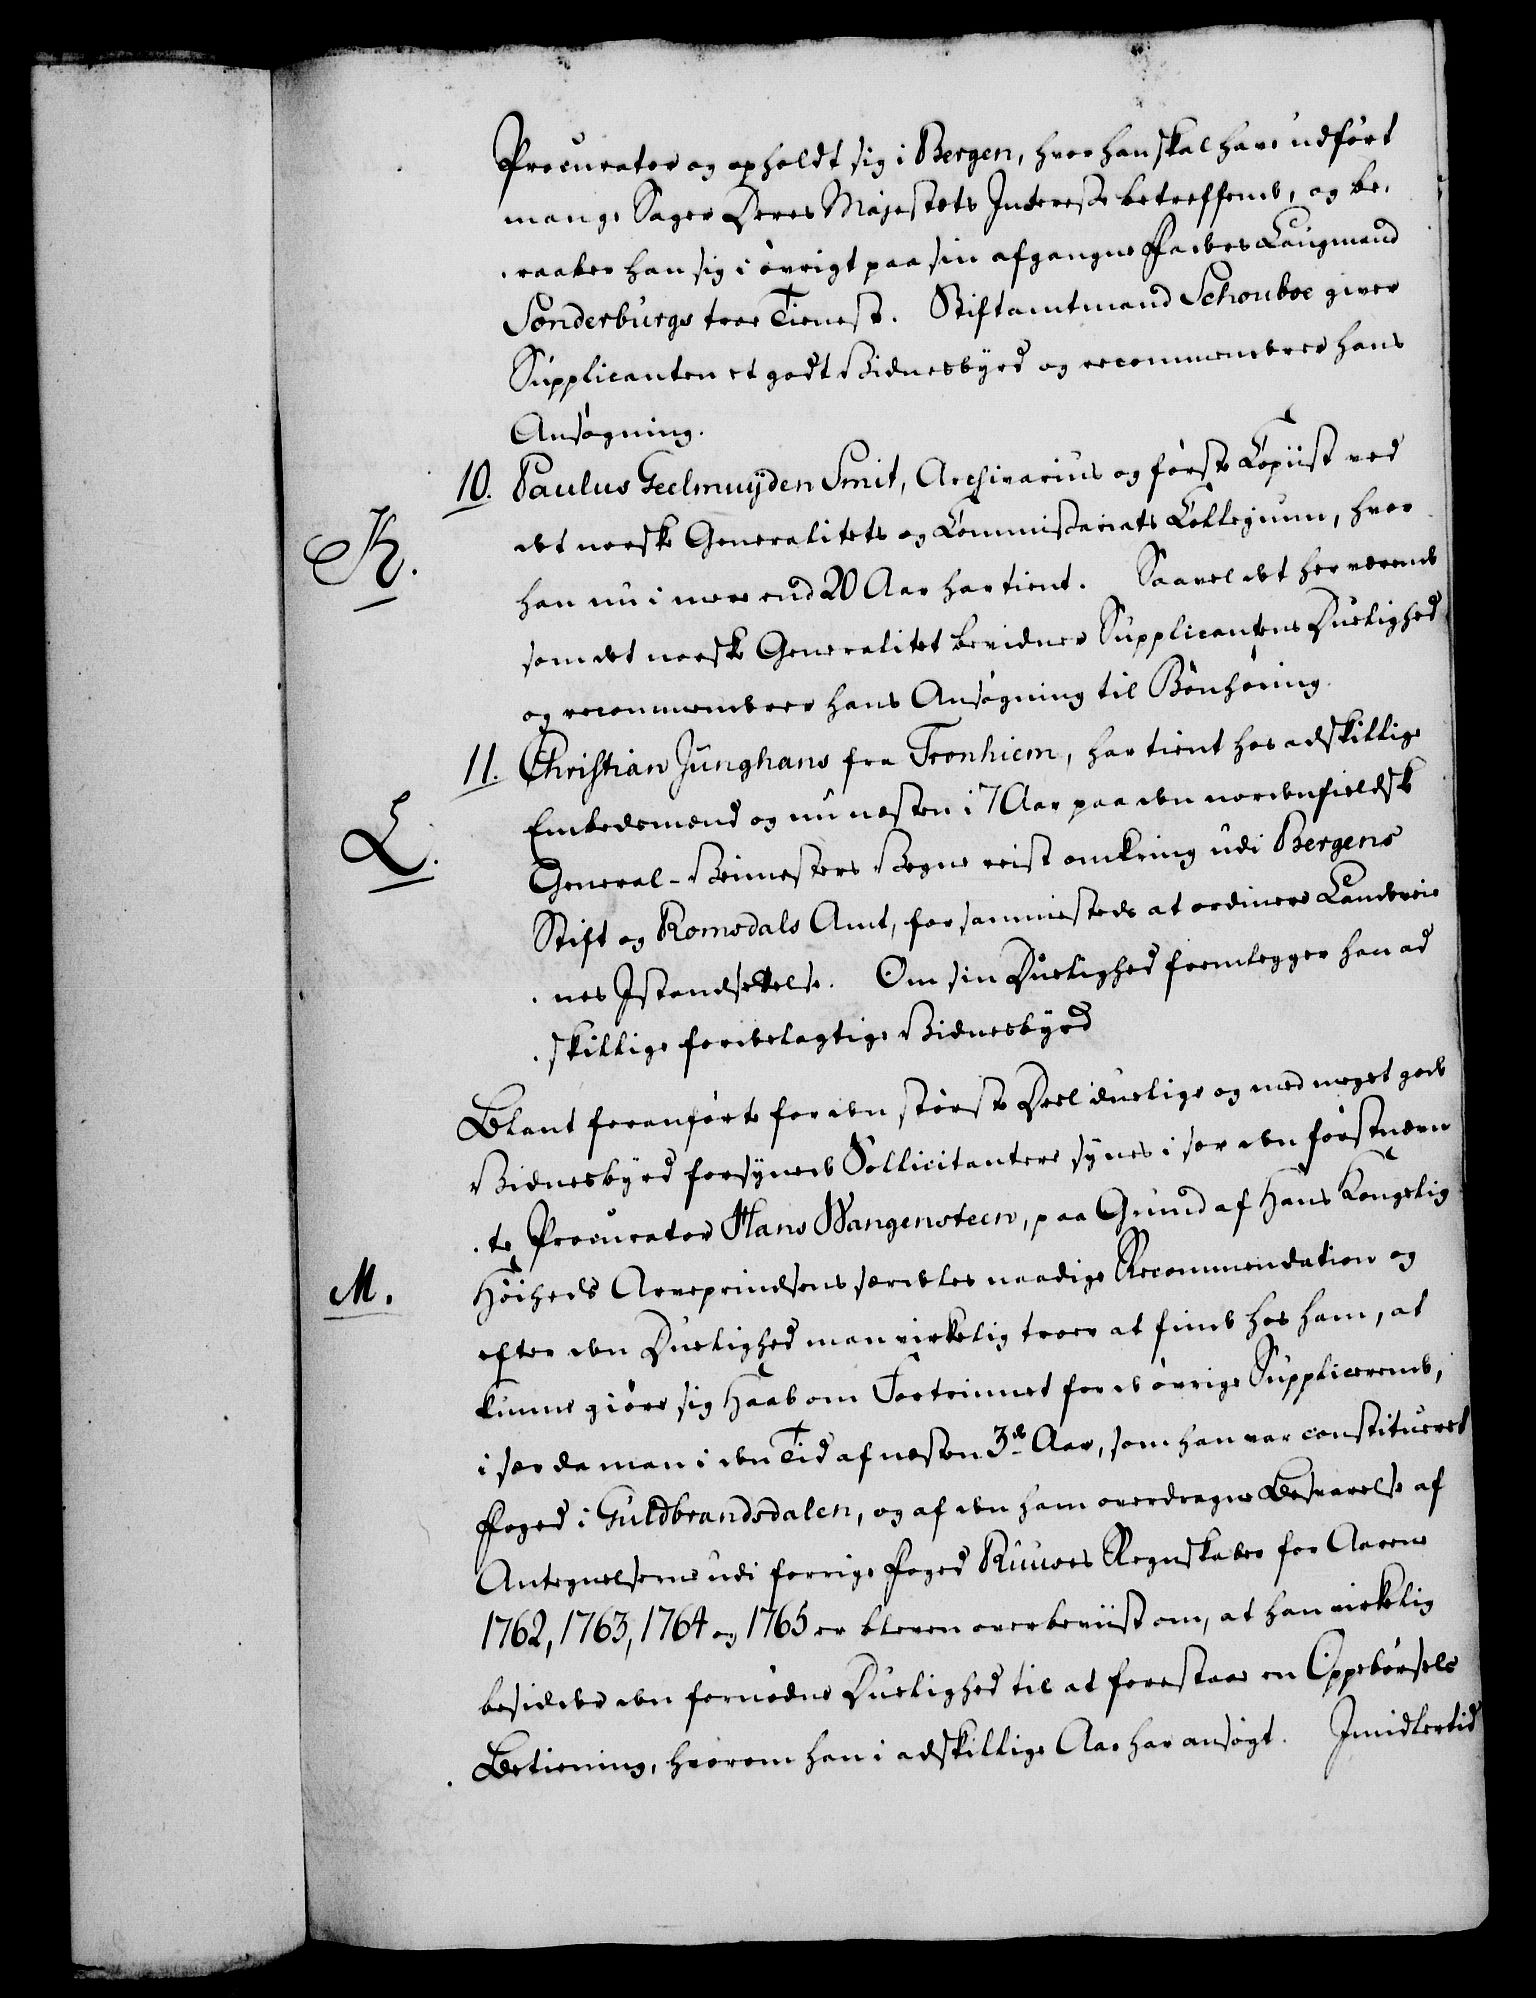 Procurator og opholdt sig i Bergen, hvor han skal have udført
mange Sager Deres Majestæts Interesse betreffende, og be-
raaber han sig i øvrigt paa sin afgangne Faders Laugmand
Sönderburgs troe Tieneste. Stiftamtmand Schouboe giver
Supplicanten et godt Vidnesbyrd og recommenderer hans
Ansøgning.
10. Paulus Geelmuyden Smit, Archivarius og første Copiist ved
det norske Generalitets og Commissariats Collegium, hvor
K.
han nu i mere end 20 Aar har tient. Saavel det her værende
som det norske Generalitet bevidner Supplicantens Duelighed
og recommenderer hans Ansøgning til Bönhöring.
11. Christian Junghans fra Tronhiem, har tient hos adskillige
Embedsmænd og nu næsten i 7 Aar paa den nordenfieldske
L.
General-Veimesters Vegne reist omkring udi Bergens
Stift og Romsdals Amt, for sammesteds at ordinere Landveie
nes Istandsettelse. Om sin Duelighed fremlegger han ad
skillige fordelagtige Vidnesbyrd
Blant foranførte for den største Deel duelige og med meget gode
Vidnesbyrd forsynede Sollicitantere synes i sær den førstnævn
te Procurator Hans Wangensteen, paa Grund af Hans Kongelig
M.
Høiheds Arveprindsens særdeles naadige Recommendation og
efter den Duelighed man virkelig troer at finde hos ham, at
kunne giøre sig Haab om Fortrinnet for de øvrige Supplicerende,
i sær da man i den Tid af næsten 3de Aar, som han var constitueret
Foged i Guldbrandsdalen, og af den ham overdragne Besvarelse af
Antegnelserne udi forrige Foged Ruuses Regnskaber for Aarene
1762, 1763, 1764 og 1765 er bleven overbeviist om, at han virkelig
besidder den fornødne Duelighed til at forestaae en Oppebørsels
Betiening, hvorom han i adskillige Aar har ansøgt. Imidlertid